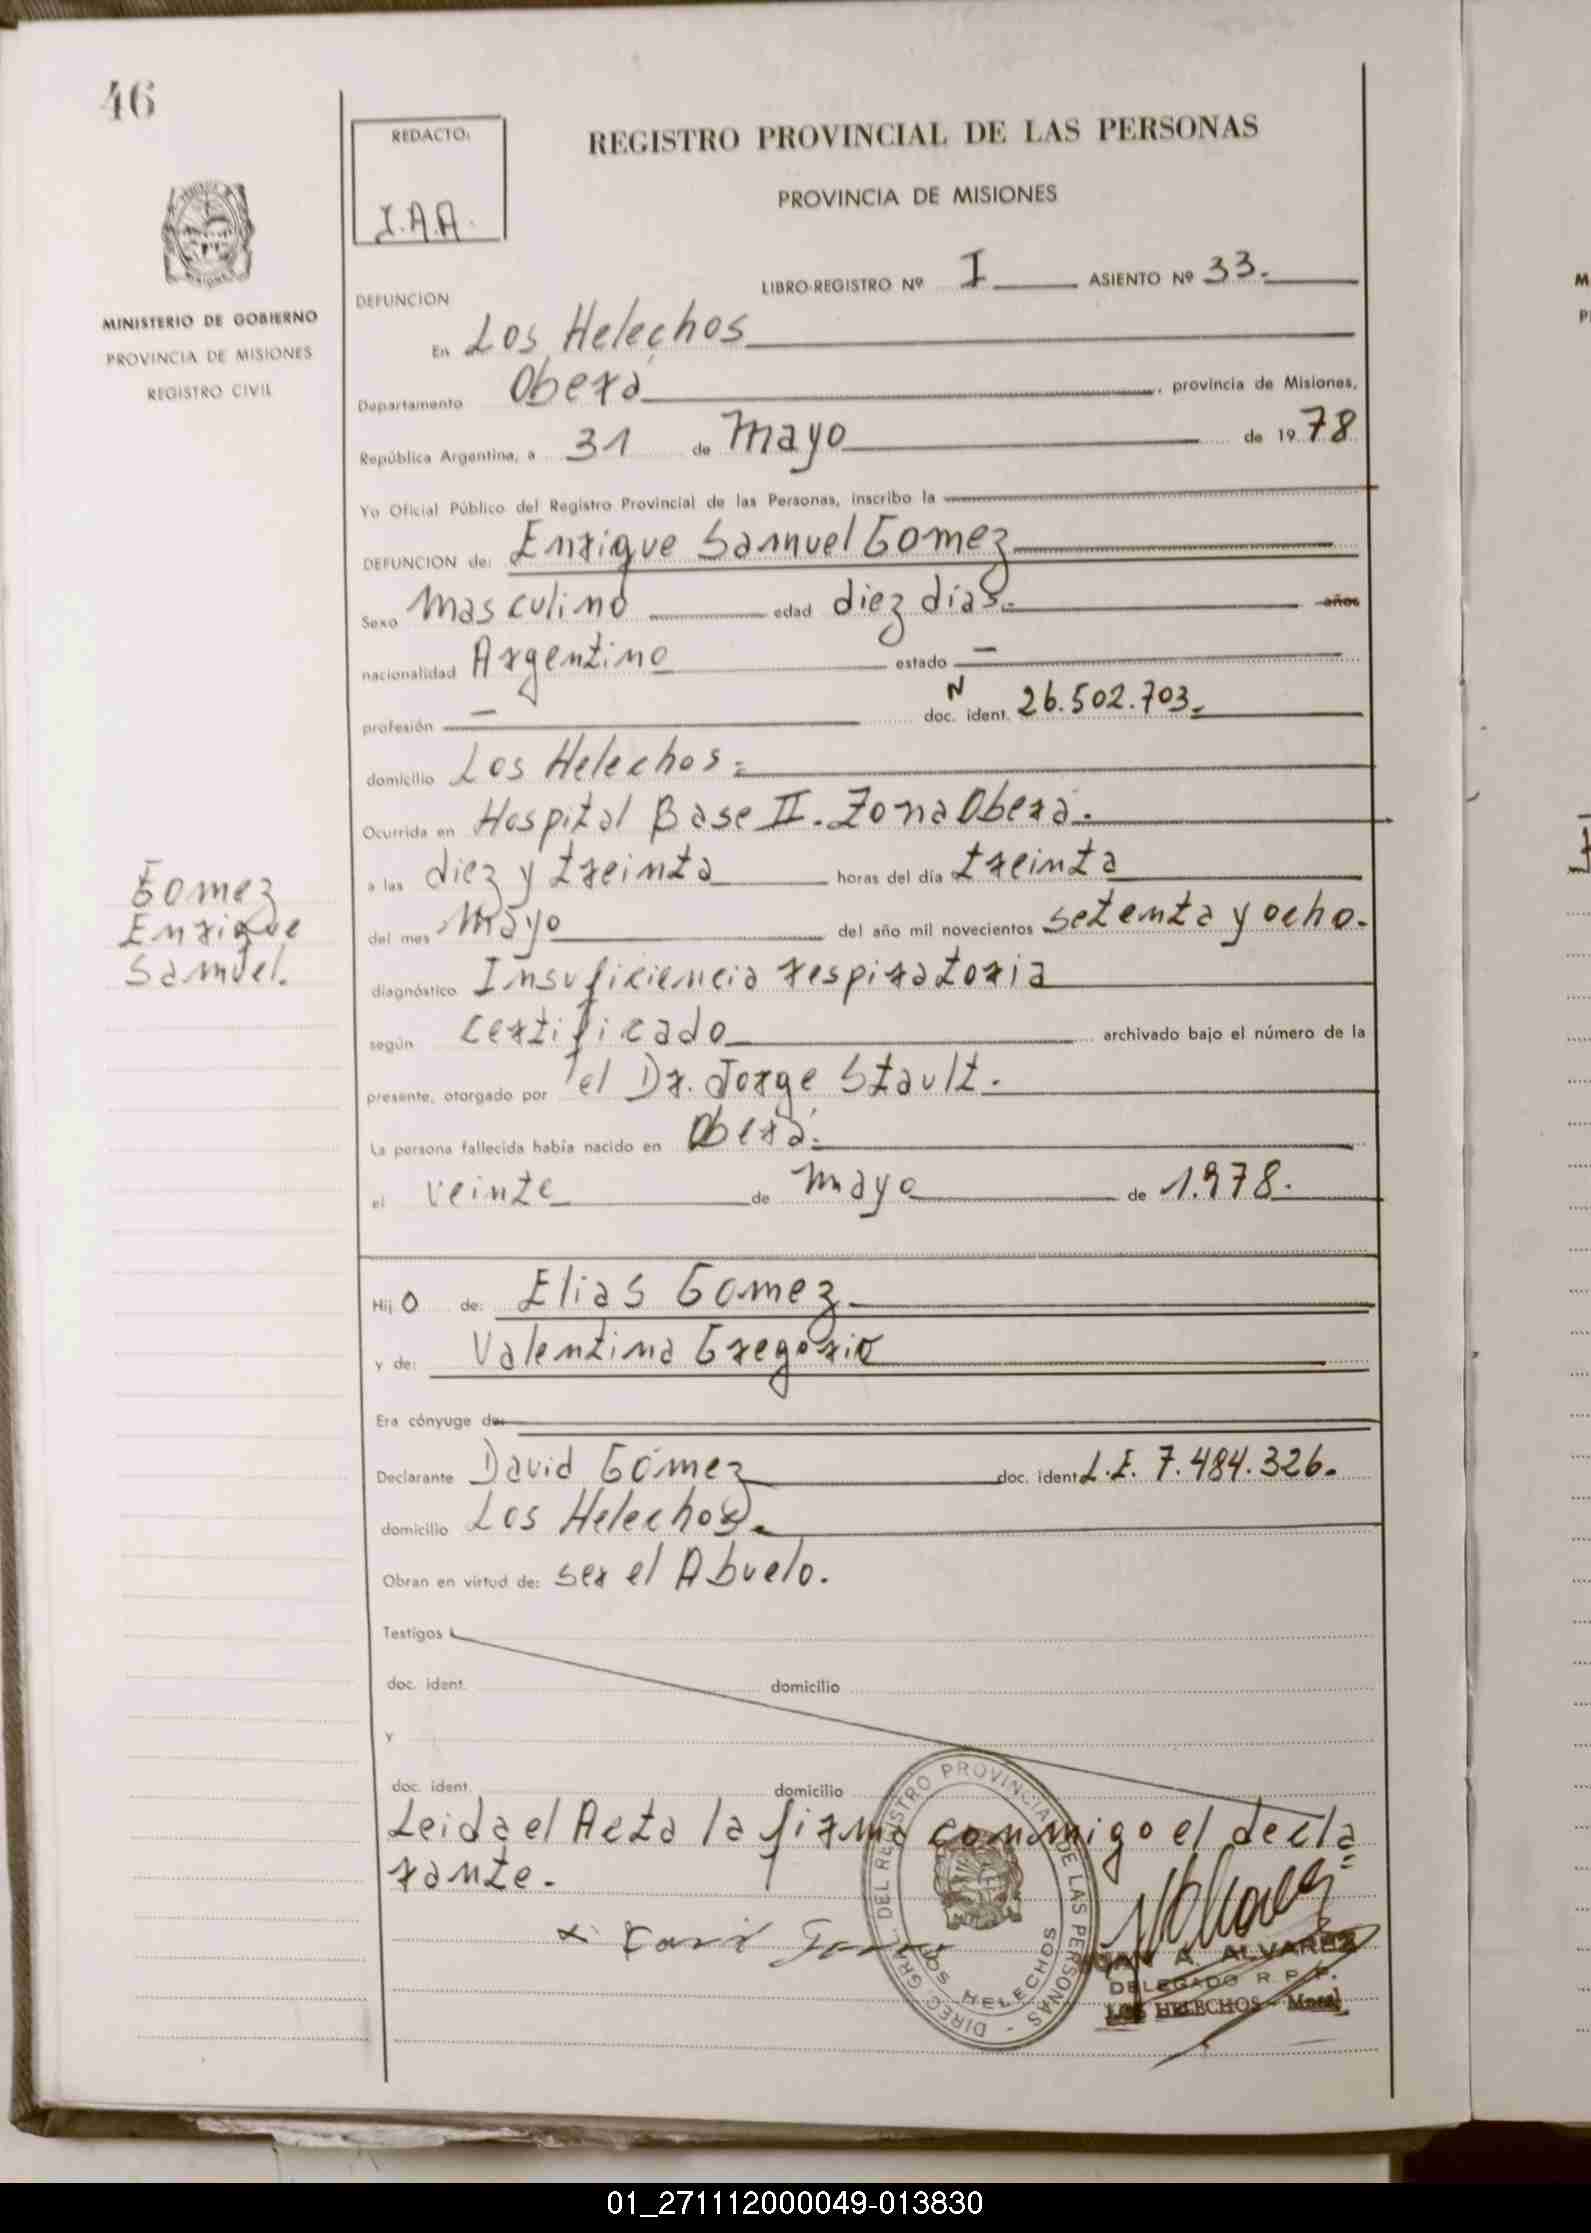 46
REDACTO:
I.A.A.
REGISTRO PROVINCIAL DE LAS PERSONAS
PROVINCIA DE MISIONES
MINISTERIO DE GOBIERNO
PROVINCIA DE MISIONES
REGISTRO CIVIL
LIBRO-REGISTRO Nº I ASIENTO Nº 33.
DEFUNCION
En Los Helechos
Departamento Oberá, provincia de Misiones,
República Argentina, a 31 de Mayo de 1978
Yo Oficial Público del Registro Provincial de las Personas, inscribo la
DEFUNCION de: Enrique Samuel Gomez
Sexo Masculino edad diez días. años
nacionalidad Argentino estado —
profesión — doc. ident. N 26.502.703.
domicilio Los Helechos.
Ocurrida en Hospital Base II. Zona Oberá.
a las diez y treinta horas del día treinta
del mes Mayo del año mil novecientos setenta y ocho.
diagnóstico Insuficiencia respiratoria
según certificado archivado bajo el número de la
presente, otorgado por el Dr. Jorge Stault.
La persona fallecida había nacido en Oberá.
el veinte de mayo de 1.978.
Gomez
Enrique
Samuel.
Hijo de: Elias Gomez
y de: Valentina Gregorio
Era cónyuge de:
Declarante David Gómez doc. ident. L.E. 7.484.326.
domicilio Los Helechos.
Obran en virtud de: ser el Abuelo.
Testigos
doc. ident. domicilio
y
doc. ident. domicilio
Leida el Acta la firma conmigo el decla=
rante.
DIREC. GRAL. DEL REGISTRO PROVINCIAL DE LAS PERSONAS - LOS HELECHOS
A. ALVAREZ
DELEGADO R. P. P.
LOS HELECHOS - Mnes.
01_271112000049-013830